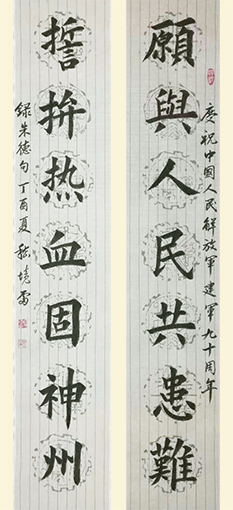 願與人民共患難
慶祝中國人民解放軍建軍九十周年
誓拚热血固神州
録朱德句丁酉夏